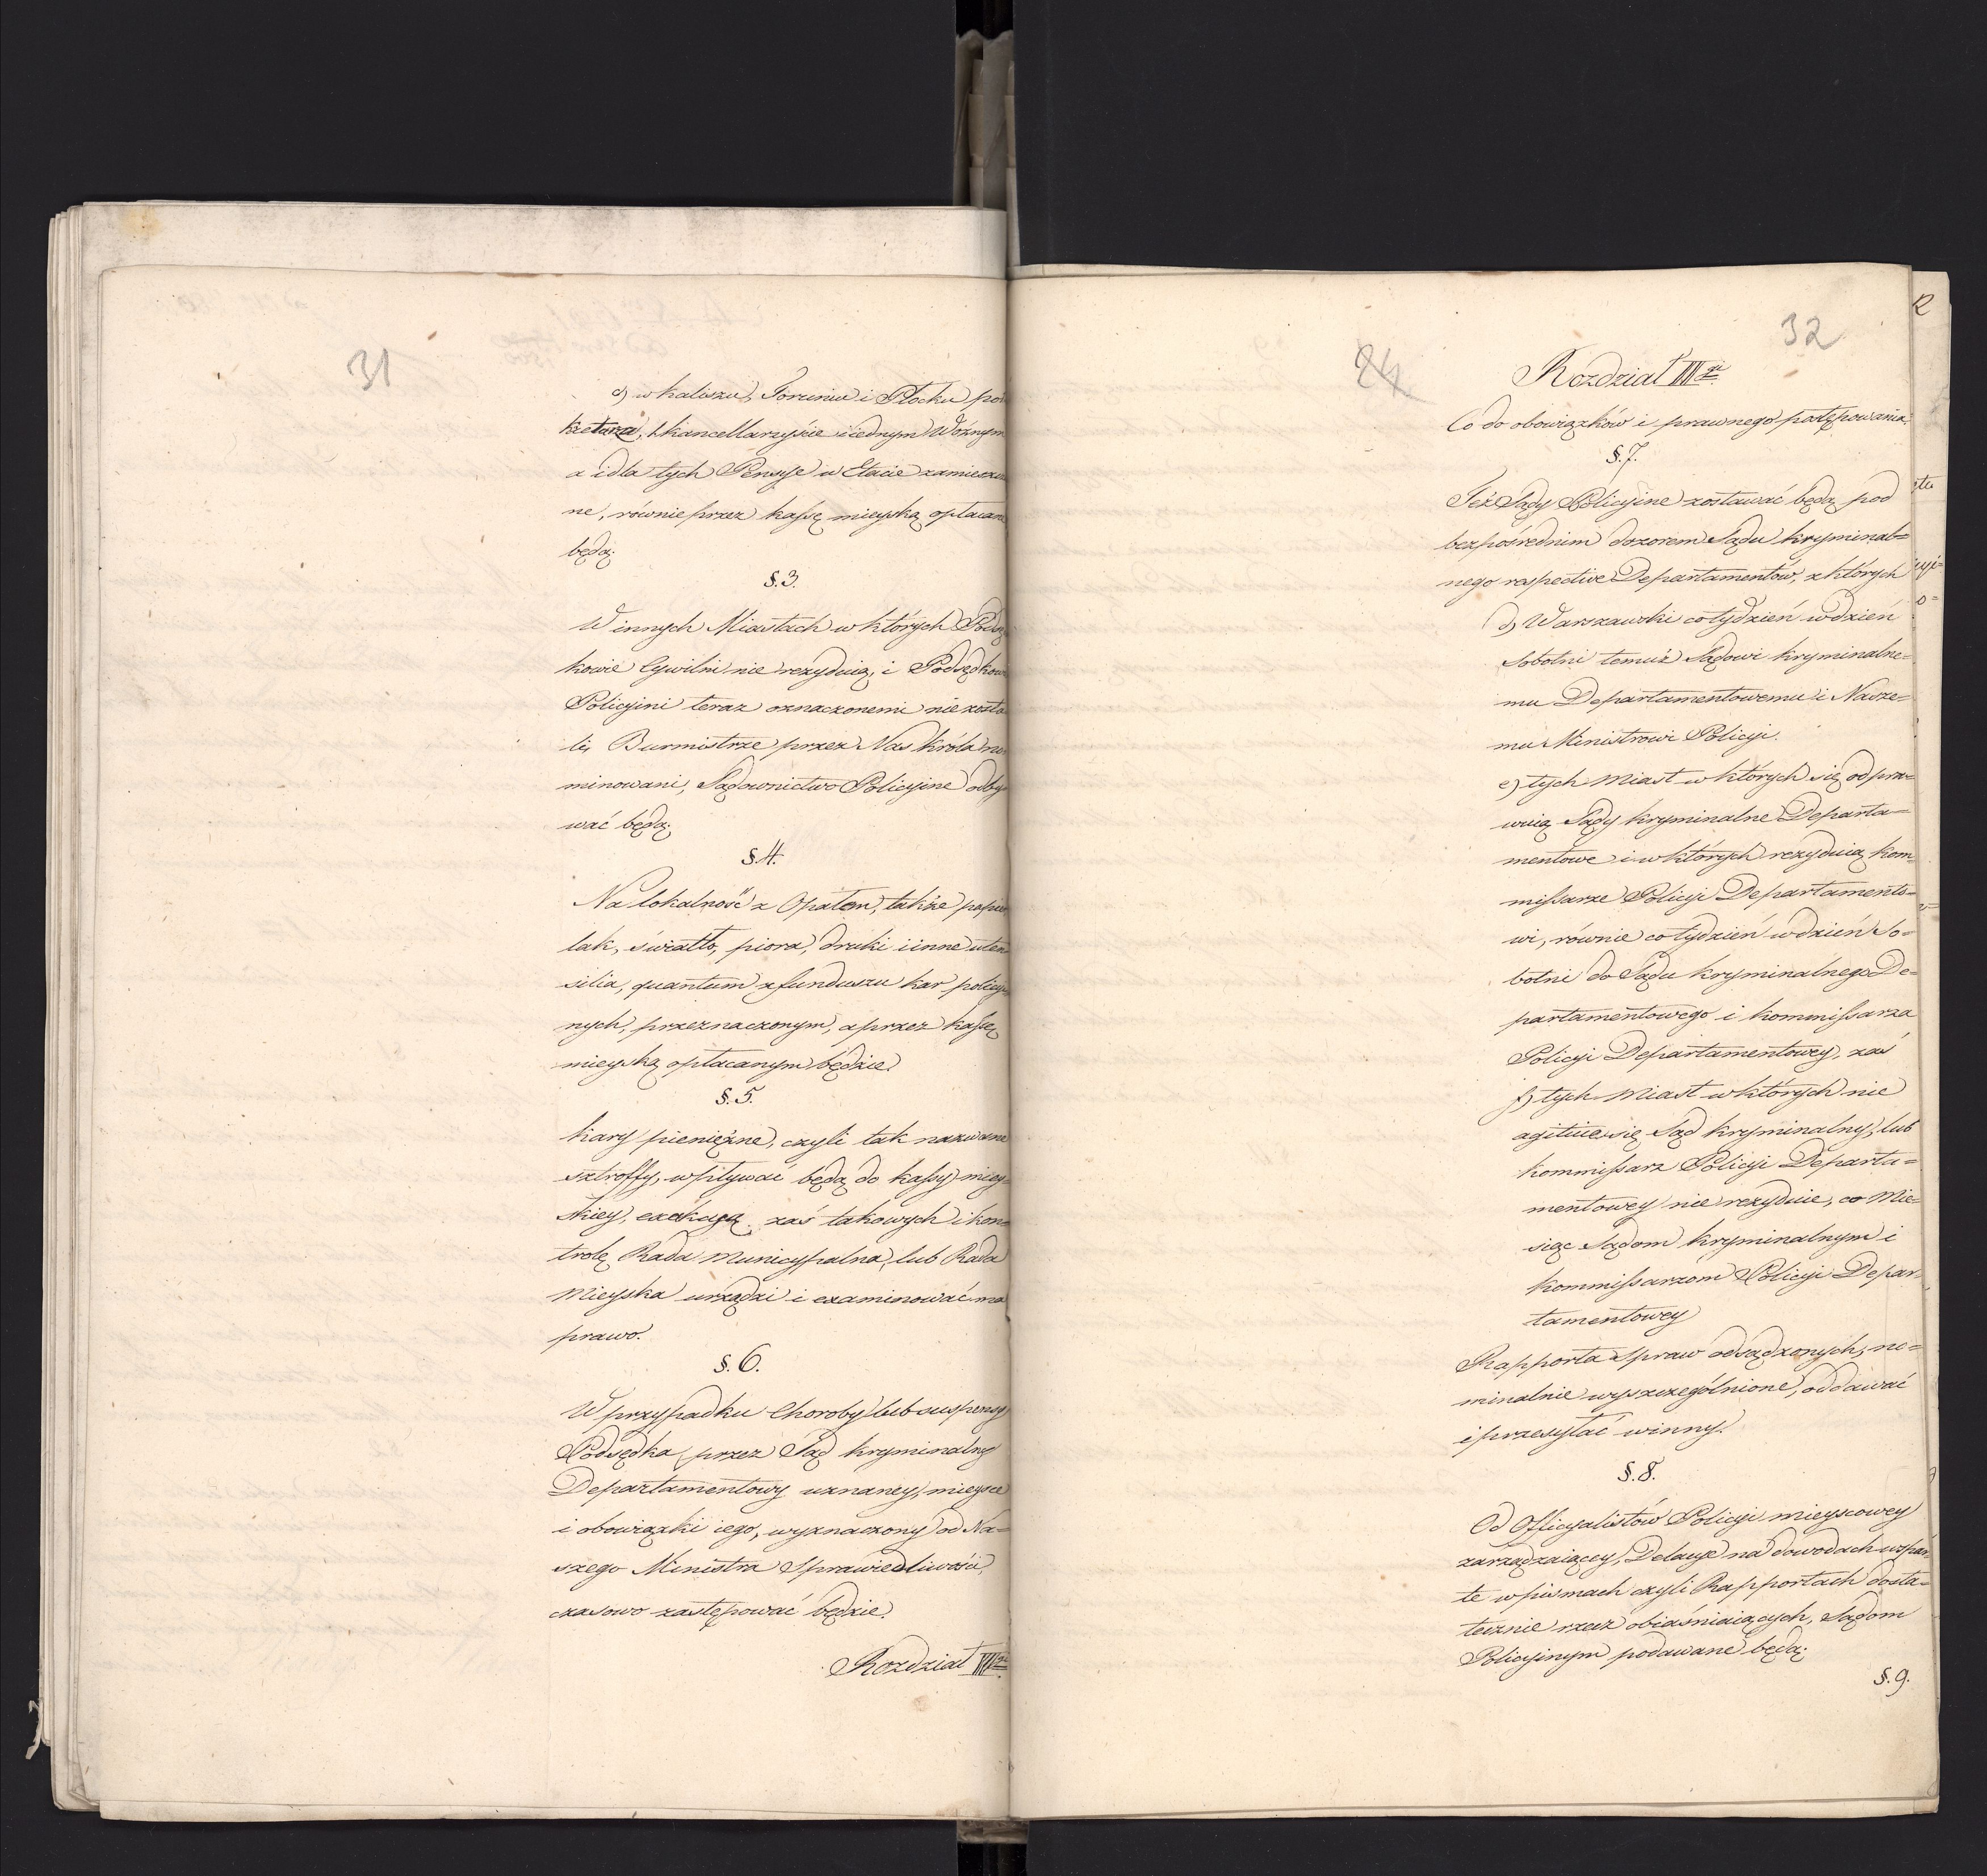 31
c) w Kaliszu, Toruniu i Płocku po
kretarza, 1 kancellarzyście i iednym Woźnym
a i dla tych Pensye w Etacie zamieszczo
ne, równie przez kassę mieyską opłacane
będą.
§. 3.
W innych Miastach w których Podsę
kowie Cywilni nie rezyduią, i Podsędkowi
Policyini teraz oznaczonemi nie zosta
li, Burmistrze przez Nas Króla no
minowani, Sądownictwo Policyine odby
wać będą.
§. 4.
Na lokalność z Opałem, także papier
lak, światło, piora, druki i inne uten
silia, quantum z funduszu kar policyi
nych, przeznaczonym, a przez kassę
mieyską opłacanym będzie.
§. 5.
Kary pieniężne, czyli tak nazwane
sztroffy, wpływać będą do kassy miey=
skiey, exekucyą zaś takowych i kon=
trolę Rada Municypalna, lub Rada
Mieyska urządzi i examinować ma
prawo.
§. 6.
W przypadku Choroby lub suspensy
Podsędka przez Sąd kryminalny
Departamentowy uznaney, mieysce
i obowiązki iego, wyznaczony od Na=
szego Ministra Sprawiedliwości,
czasowo zastępować będzie.
Rozdział III
32
24
Rozdział III
Co do obowiązków i prawnego postępowania.
§. 7.
Też Sądy Policyine zostawać będą pod
bezpośrednim dozorem Sądu kryminal=
nego respective Departamentów, z których
d) Warszawski co tydzień w dzień
Sobotni temuż Sądowi kryminalne=
mu Departamentowemu i Nasze=
mu Ministrowi Policyi.
e) tych Miast w których się odpra=
wuią Sądy kryminalne Departa=
mentowe i w których rezyduią kom=
missarze Policyi Departamento=
wi, równie co tydzień w dzień So=
botni do Sądu kryminalnego De=
partamentowego i kommissarza
Policyi Departamentowey, zaś
f) tych Miast w których nie
agituie się Sąd kryminalny, lub
kommissarz Policyi Departa=
mentowey nie rezyduie, co Mie=
siąc Sądom kryminalnym i
kommissarzom Policyi Depar=
tamentowey
Rapporta Spraw odsądzonych, no=
minalnie wyszczególnione, oddawać
i przesyłać winny.
§. 8.
Od Officyalistów Policyi mieyscowey
zarządzaiącey, Delacye na dowodach wspar
te w pismach czyli Rapportach dosta=
tecznie rzecz obiaśniaiących, Sądom
Policyinym podawane będą.
§. 9.